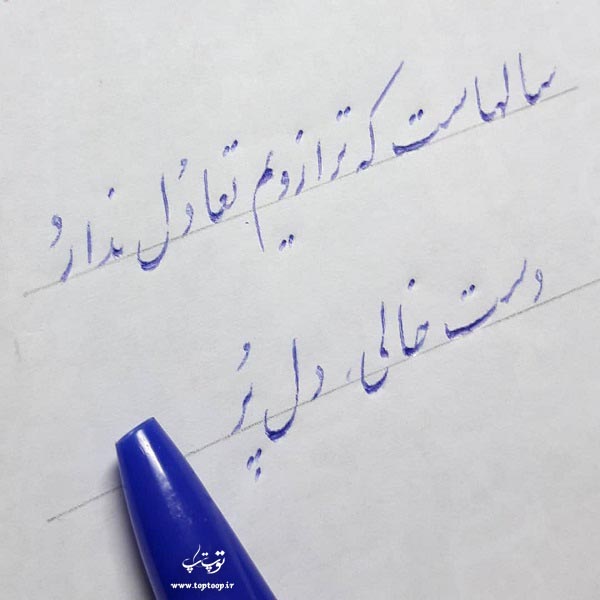 سالهاست که ترازویم تعادُل ندارد
دست خالی، دل پُر
توپ تاپ
www.toptoop.ir